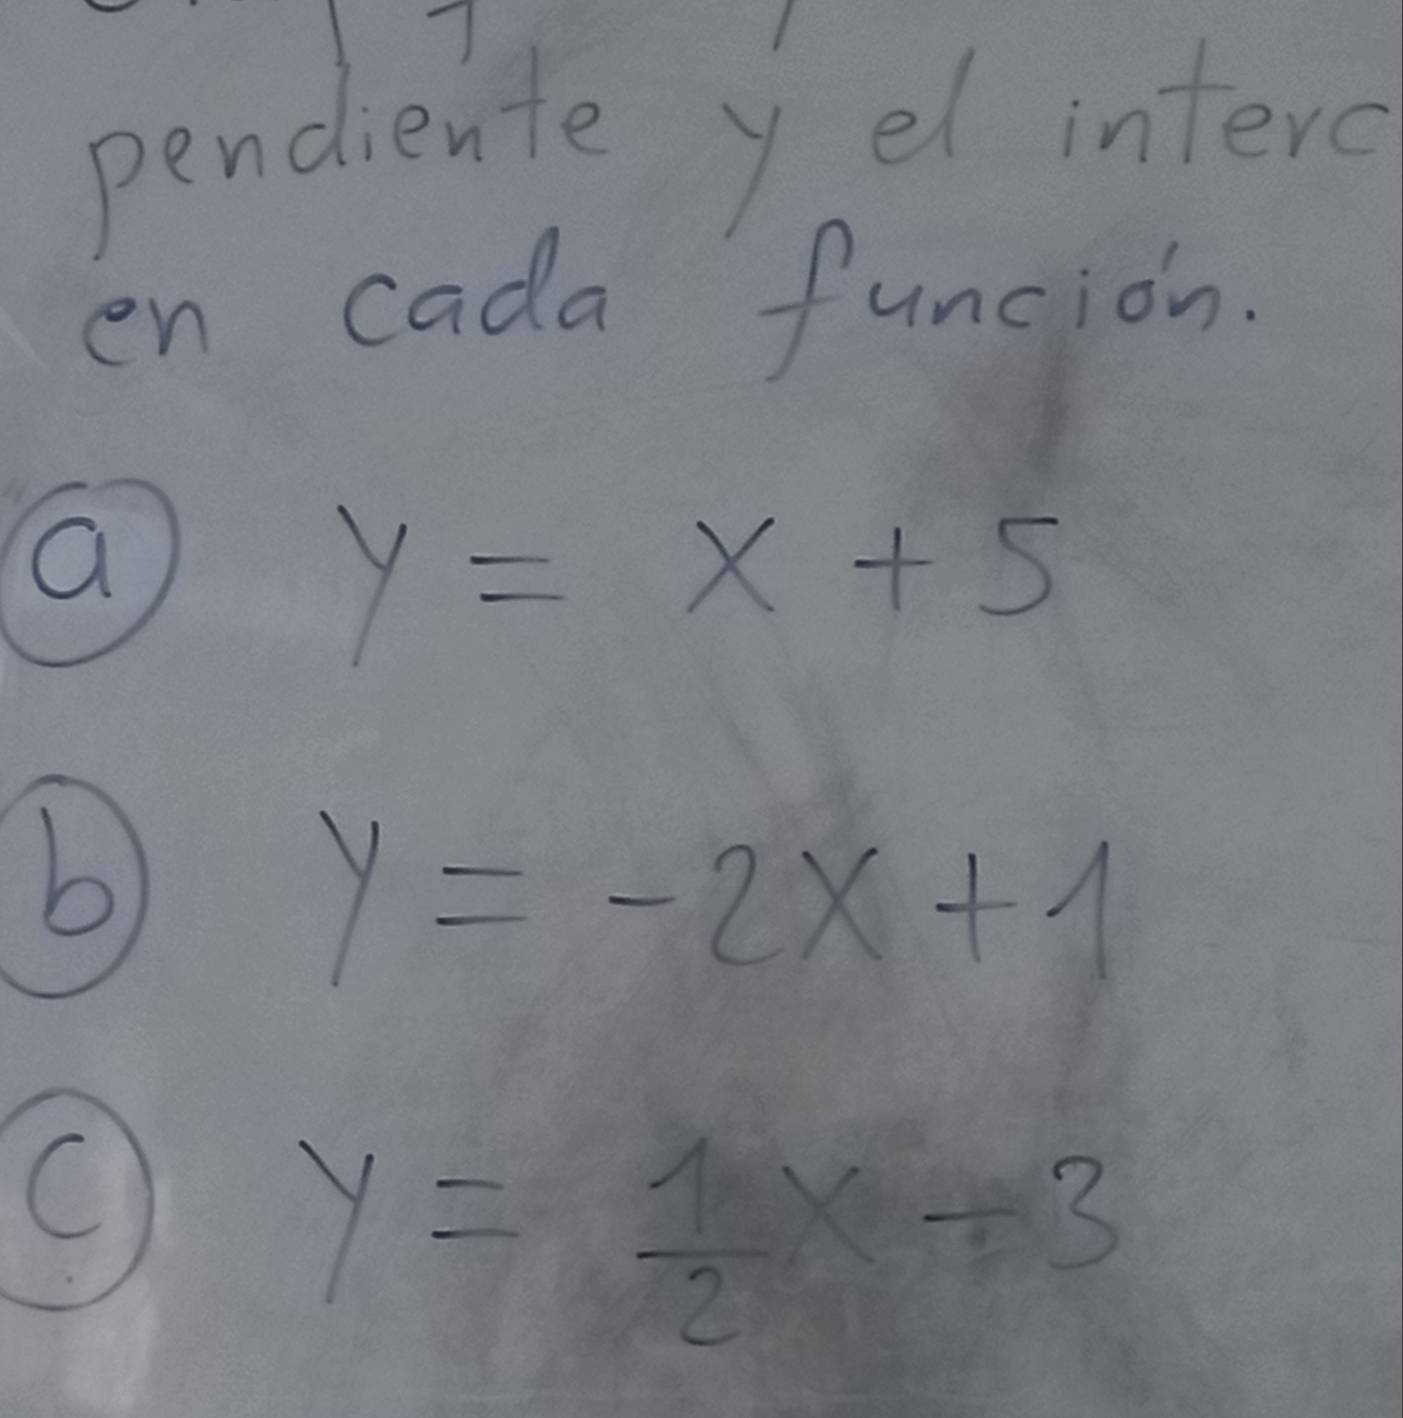 pendiente y el interc
en cada función.
a y = x + 5
b y = -2x + 1
c y = 1/2 x - 3